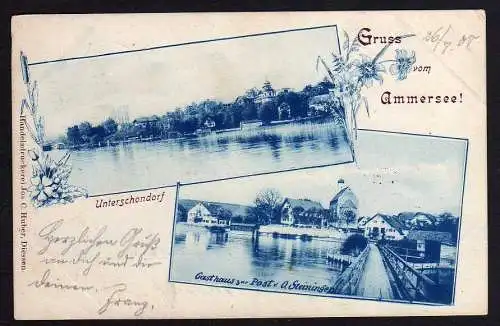 Gruss
vom
Ammersee!
26/7 00
Unterschondorf
Gasthaus zur Post v. O. Steininger
Handelsdruckerei Jos. C. Huber, Diessen.
Herzlichen Gruß
an dich und die
deinen. Franz.